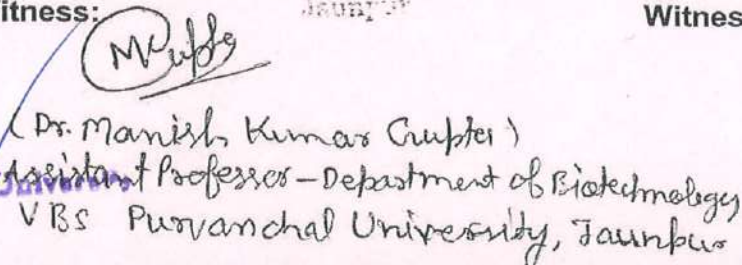 itness: Jaunpur Witnes
MGupta
(Dr. Manish Kumar Gupta)
Assistant Professor - Department of Biotechnology
VBS Purvanchal University, Jaunpur